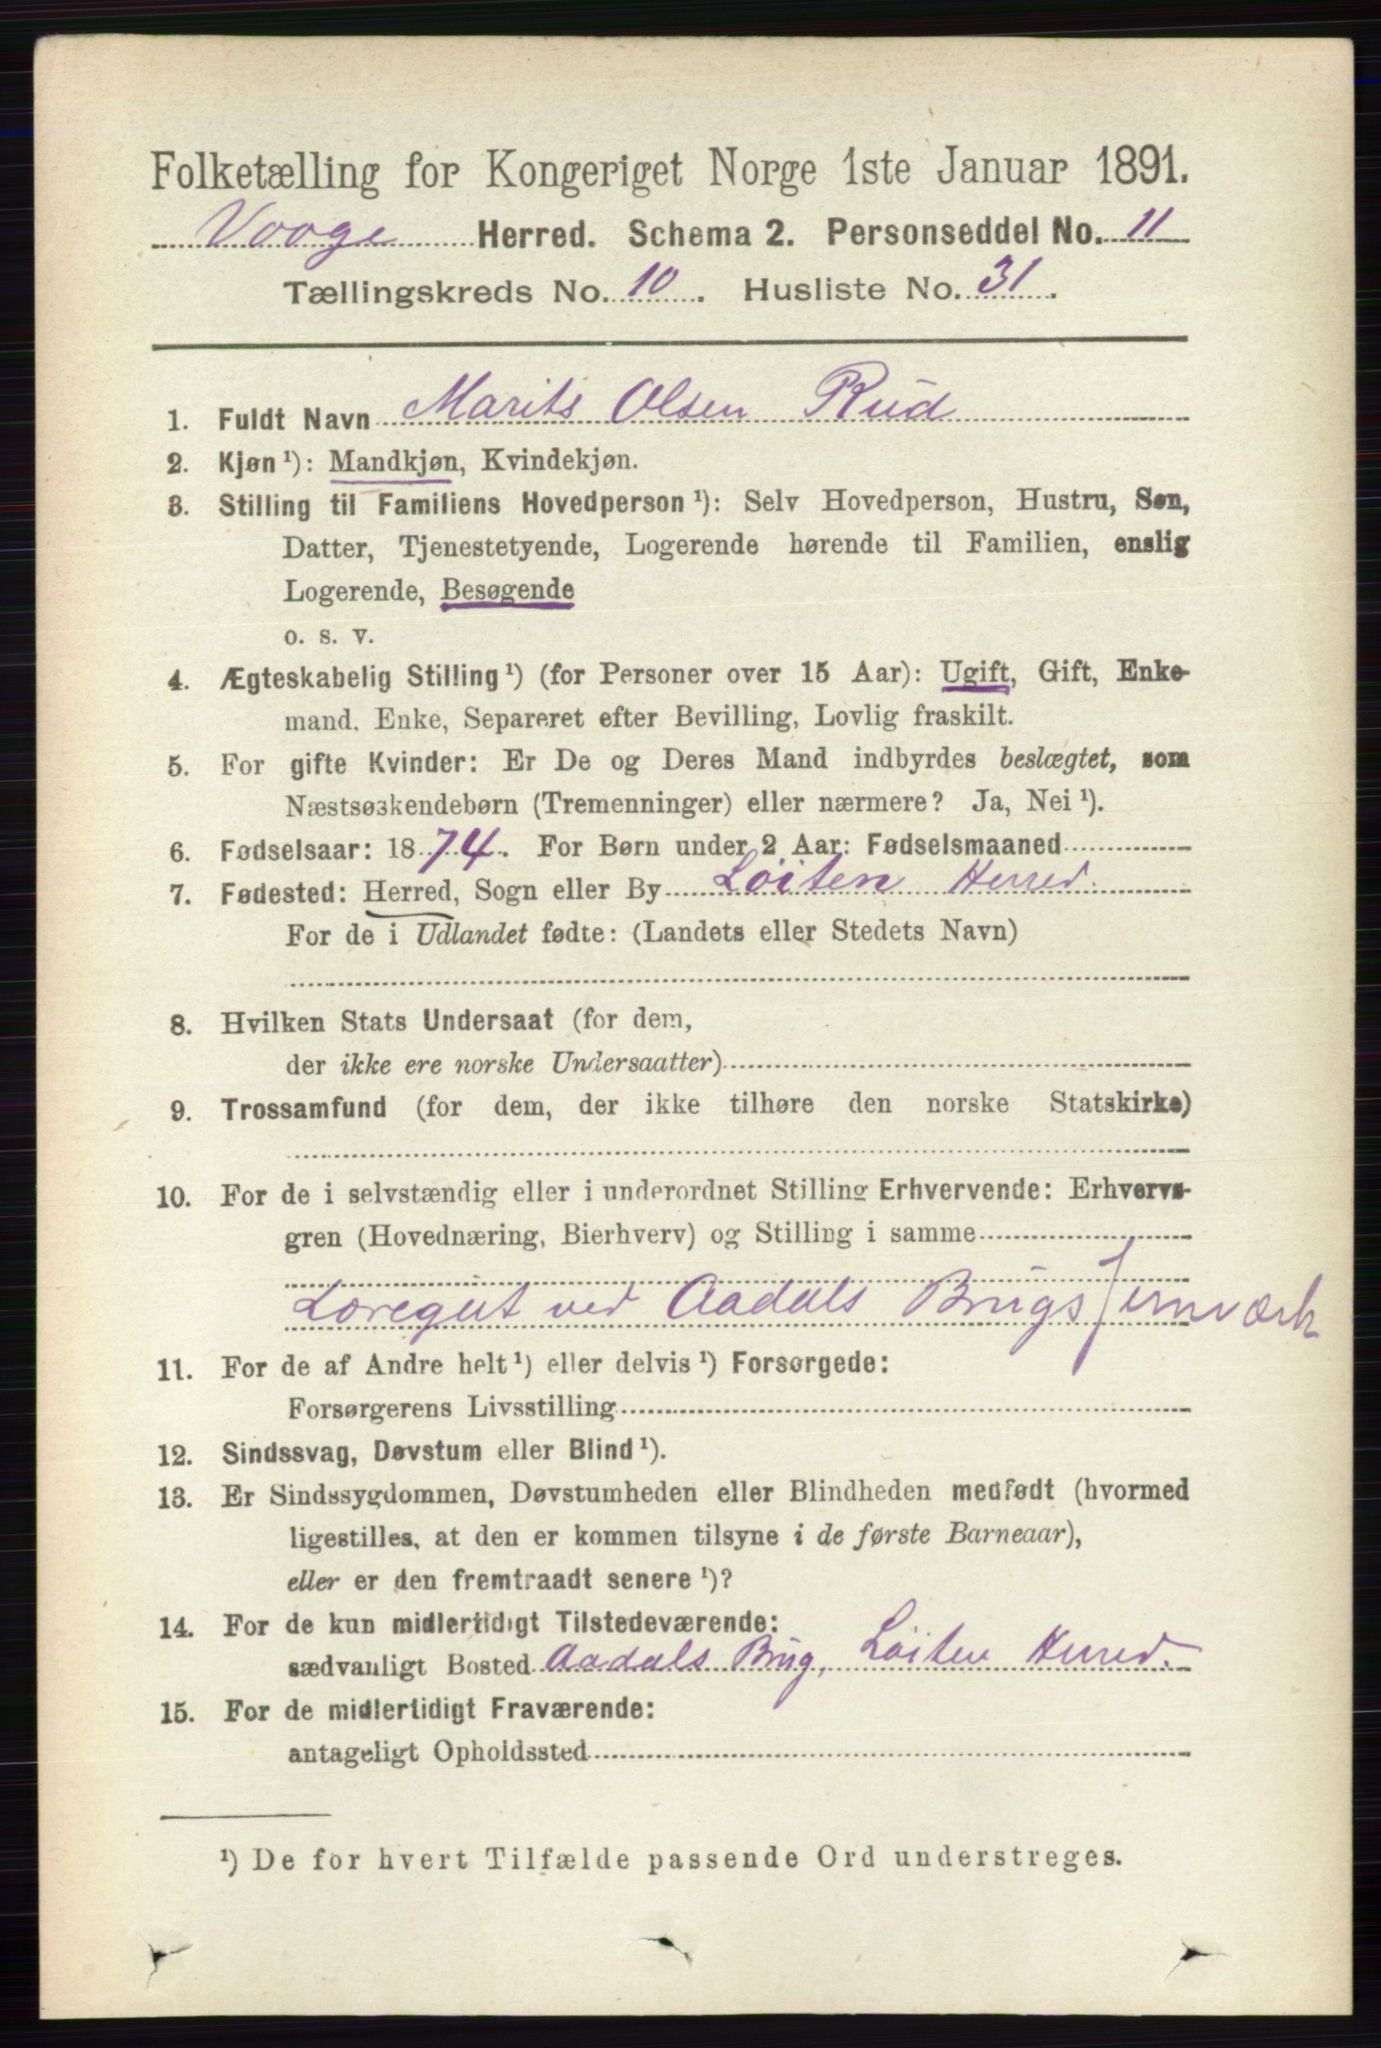 Folketælling for Kongeriget Norge 1ste Januar 1891.
Vooge Herred. Schema 2. Personseddel No. 11
Tællingskreds No. 10. Husliste No. 31.
1. Fuldt Navn Marits Olsen Rud
2. Kjøn ¹): Mandkjøn, Kvindekjøn.
3. Stilling til Familiens Hovedperson ¹): Selv Hovedperson, Hustru, Søn,
Datter, Tjenestetyende, Logerende hørende til Familien, enslig
Logerende, Besøgende
o. s. v.
4. Ægteskabelig Stilling ¹) (for Personer over 15 Aar): Ugift, Gift, Enke-
mand, Enke, Separeret efter Bevilling, Lovlig fraskilt.
5. For gifte Kvinder: Er De og Deres Mand indbyrdes beslægtet, som
Næstsøskendebørn (Tremenninger) eller nærmere? Ja, Nei ¹).
6. Fødselsaar: 1874. For Børn under 2 Aar: Fødselsmaaned
7. Fødested: Herred, Sogn eller By Løiten Herred.
For de i Udlandet fødte: (Landets eller Stedets Navn)
8. Hvilken Stats Undersaat (for dem,
der ikke ere norske Undersaatter)
9. Trossamfund (for dem, der ikke tilhøre den norske Statskirke)
10. For de i selvstændig eller i underordnet Stilling Erhvervende: Erhvervs-
gren (Hovednæring, Bierhverv) og Stilling i samme
Læregut ved Aadals Brugs Jernværk
11. For de af Andre helt ¹) eller delvis ¹) Forsørgede:
Forsørgerens Livsstilling
12. Sindssvag, Døvstum eller Blind ¹).
13. Er Sindssygdommen, Døvstumheden eller Blindheden medfødt (hvormed
ligestilles, at den er kommen tilsyne i de første Barneaar),
eller er den fremtraadt senere ¹)?
14. For de kun midlertidigt Tilstedeværende:
sædvanligt Bosted Aadals Brug, Løiten Herred.
15. For de midlertidigt Fraværende:
antageligt Opholdssted
¹) De for hvert Tilfælde passende Ord understreges.